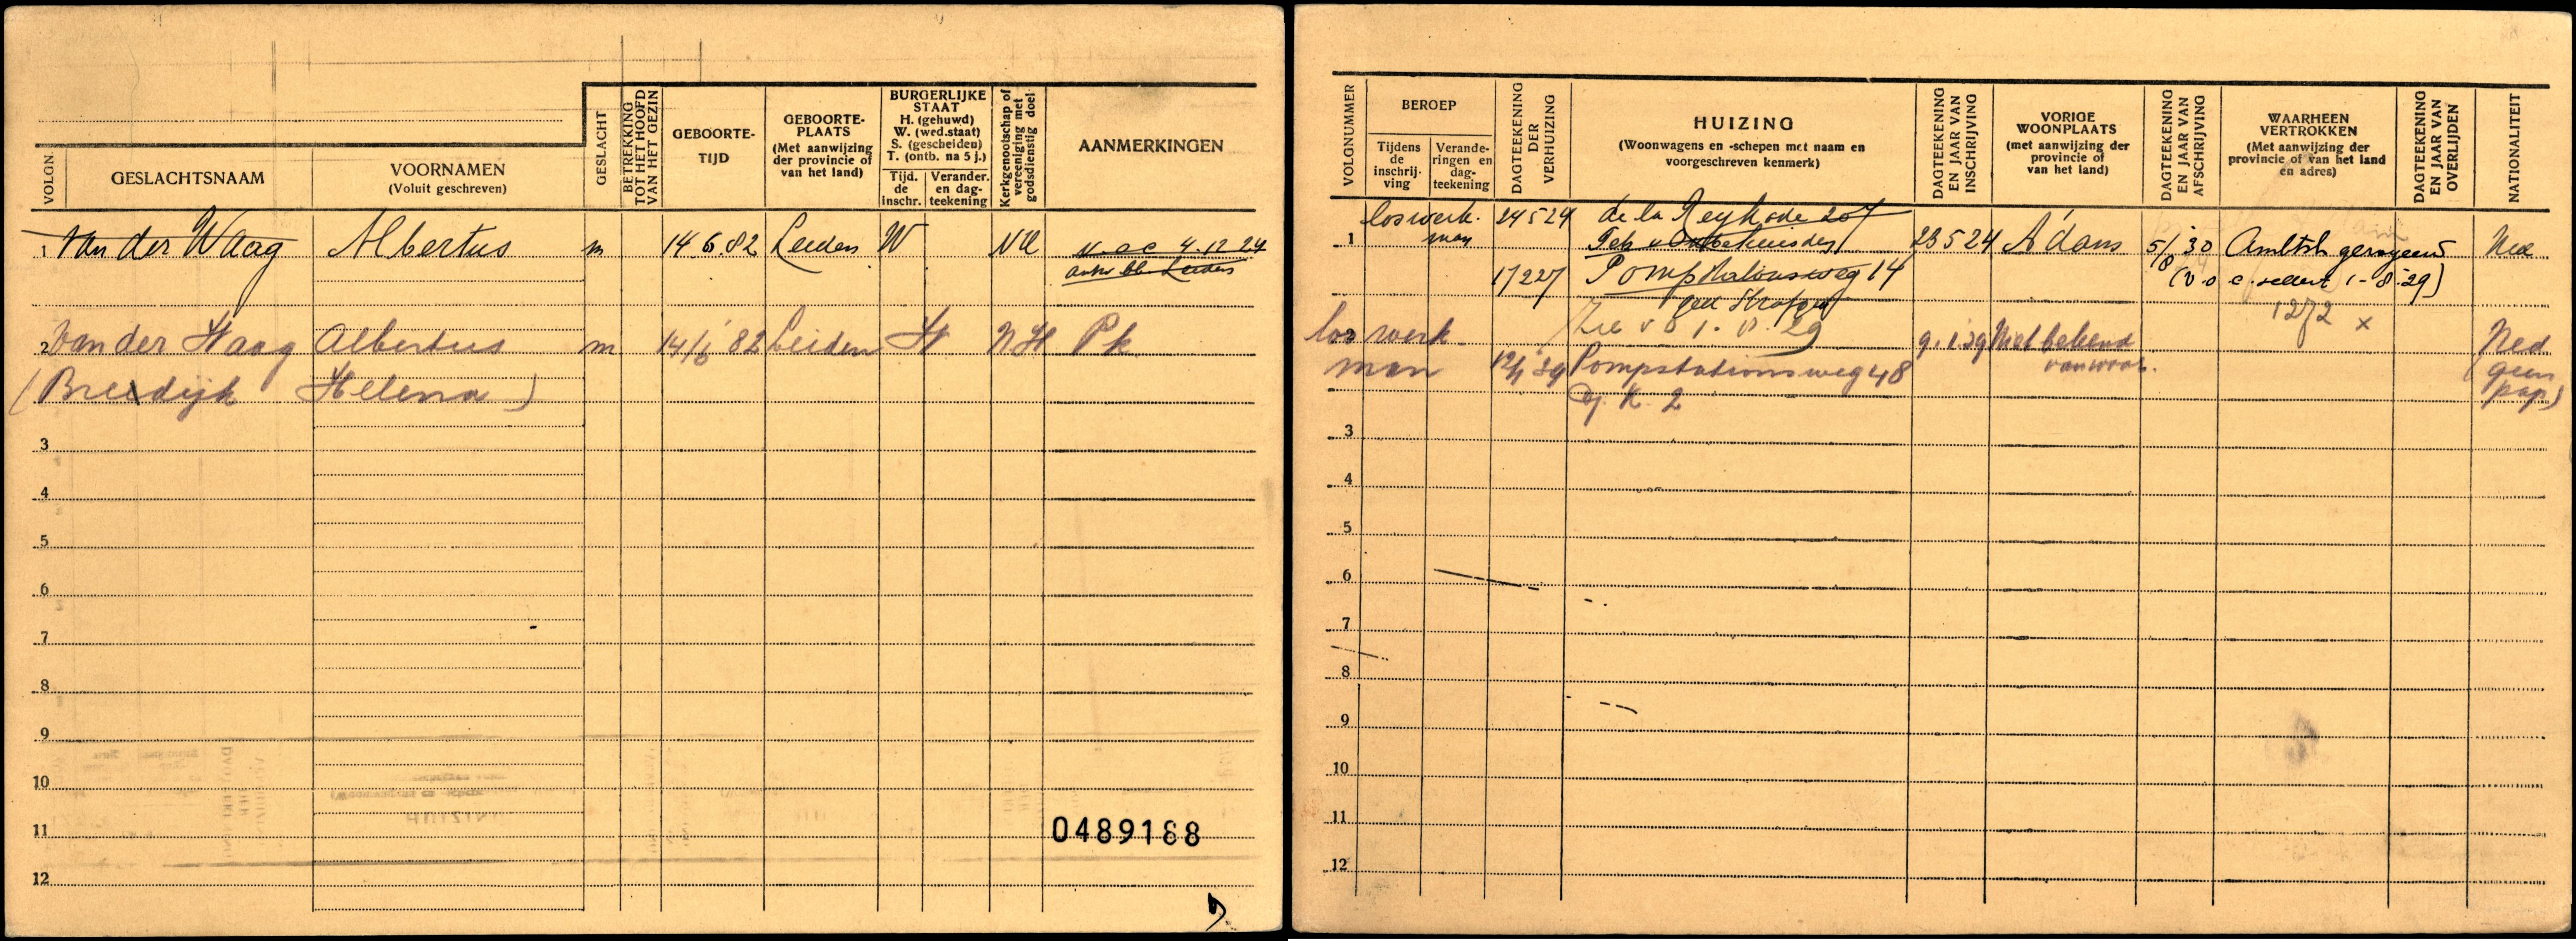 VOLGN.
GESLACHTSNAAM
VOORNAMEN
(Voluit geschreven)
GESLACHT
BETREKKING
TOT HET HOOFD
VAN HET GEZIN
GEBOORTE-
TIJD
GEBOORTE-
PLAATS
(Met aanwijzing
der provincie of
van het land)
BURGERLIJKE
STAAT
H. (gehuwd)
W. (wed.staat)
S. (gescheiden)
T. (ontb. na 5 j.)
Tijd.
de
inschr.
Verander.
en dag-
teekening
Kerkgenootschap of
vereeniging met
godsdienstig doel
AANMERKINGEN
1 van der Waag Albertus m 14.6.82 Leiden W NH 4.12.24
Leiden
2 van der Haag Albertus m 14/6 82 Leiden H NH Pk
(Breedijk Helena)
3
4
5
6
7
8
9
10
11
0489188
12
VOLGNUMMER
BEROEP
Tijdens
de
inschrij-
ving
Verande-
ringen en
dag-
teekening
DAGTEEKENING
DER
VERHUIZING
HUIZING
(Woonwagens en -schepen met naam en
voorgeschreven kenmerk)
DAGTEEKENING
EN JAAR VAN
INSCHRIJVING
VORIGE
WOONPLAATS
(met aanwijzing der
provincie of
van het land)
DAGTEEKENING
EN JAAR VAN
AFSCHRIJVING
WAARHEEN
VERTROKKEN
(Met aanwijzing der
provincie of van het land
en adres)
DAGTEEKENING
EN JAAR VAN
OVERLIJDEN
NATIONALITEIT
1 los werk- 24 5 24 de la Reykade 207
man 23 5 24 A'dam 5/8 '30 Ambtsh. geroyeerd Ned
17 2 27 Pompstationsweg 14 1-8-29)
1272 x
Zie v o 1.8.29
2 los werk 9.1.39 Niet bekend Ned
man 12/1 '39 Pompstationsweg 48 van waar. (geen
g. K. 2 pap)
3
4
5
6
7
8
9
10
11
12